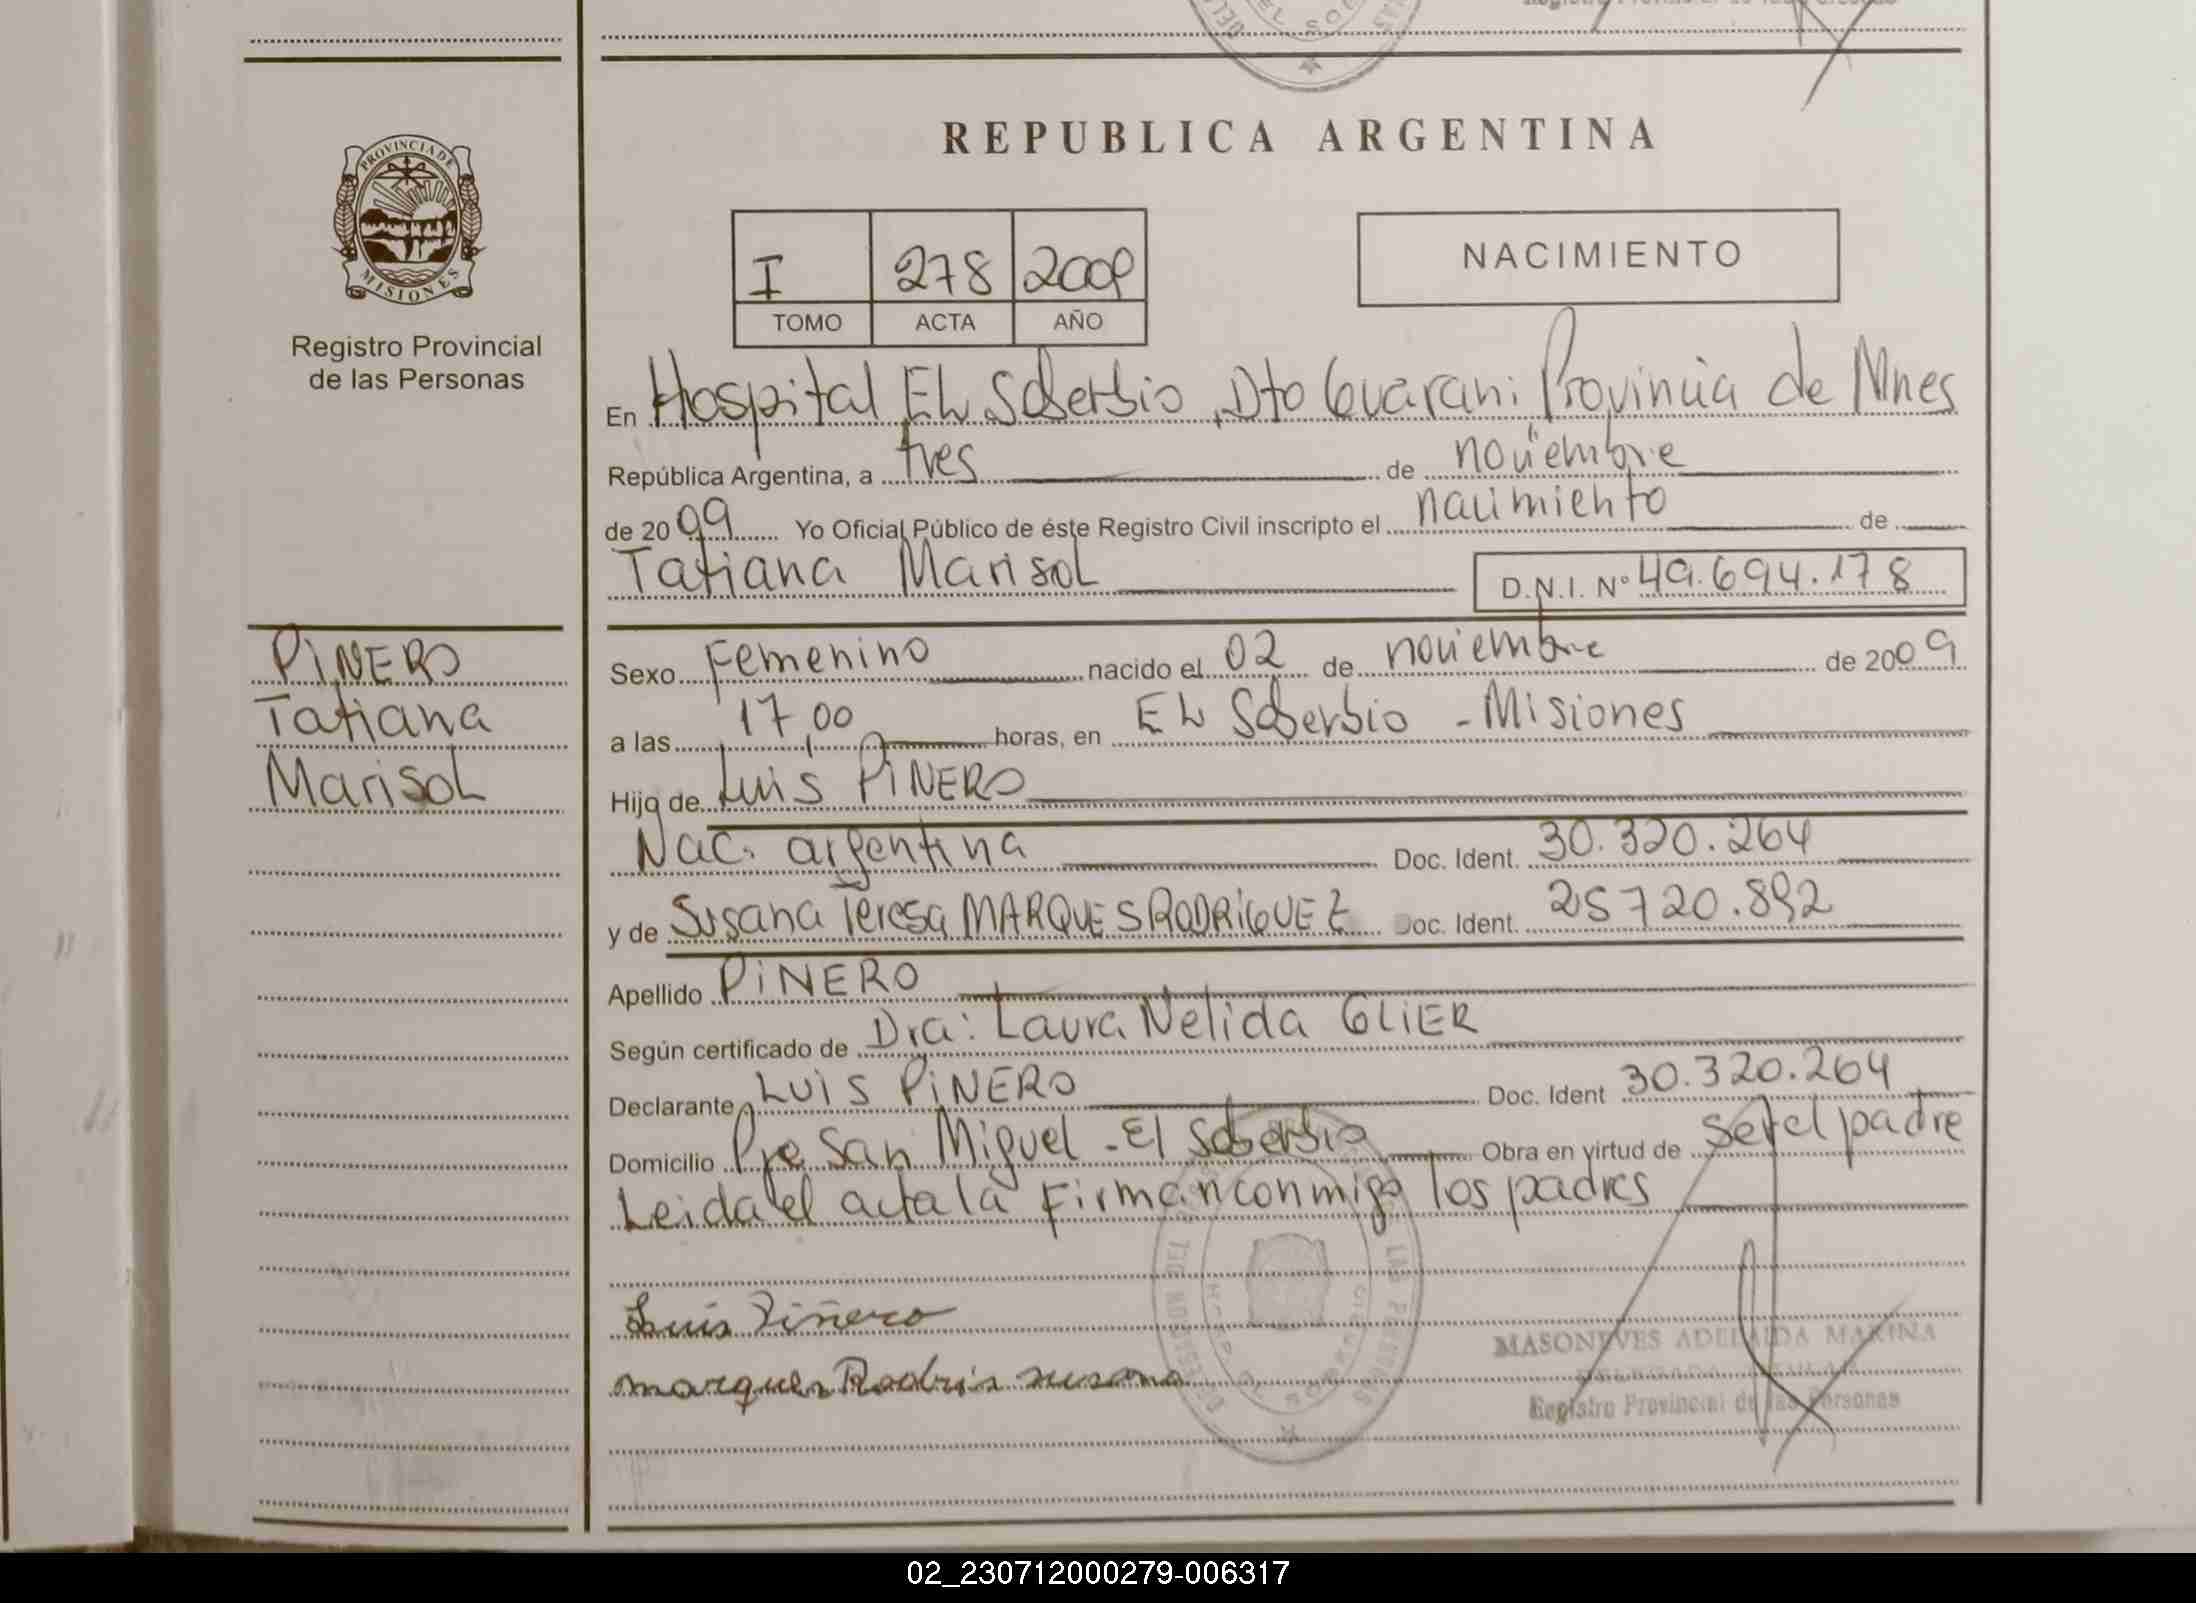 REPUBLICA ARGENTINA
PROVINCIA DE
MISIONES
Registro Provincial
de las Personas
I 278 2009
TOMO ACTA AÑO
NACIMIENTO
En Hospital EL Soberbio, Dto Guarani Provincia de Mnes
República Argentina, a tres de noviembre
de 2009 Yo Oficial Público de éste Registro Civil inscripto el nacimiento de
Tatiana Marisol D.N.I. Nº 49.694.178
PiNERO
Tatiana
Marisol
Sexo Femenino nacido el 02 de noviembre de 2009
a las 17,00 horas, en EL Soberbio - Misiones
Hijo de Luis PiNERO
Nac. argentina Doc. Ident. 30.320.264
y de Susana Teresa MARQUES RODRIGUEZ Doc. Ident. 25720.892
Apellido PiNERO
Según certificado de Dra: Laura Nelida GLiER
Declarante LUiS PiNERO Doc. Ident 30.320.264
Domicilio Pje San Miguel - El Soberbio Obra en virtud de ser el padre
Leida el acta la Firman conmigo los padres
Luis Piñero
marques Rodrig susana
MASONEVES ADELAIDA MARINA
Registro Provincial de las Personas
02_230712000279-006317